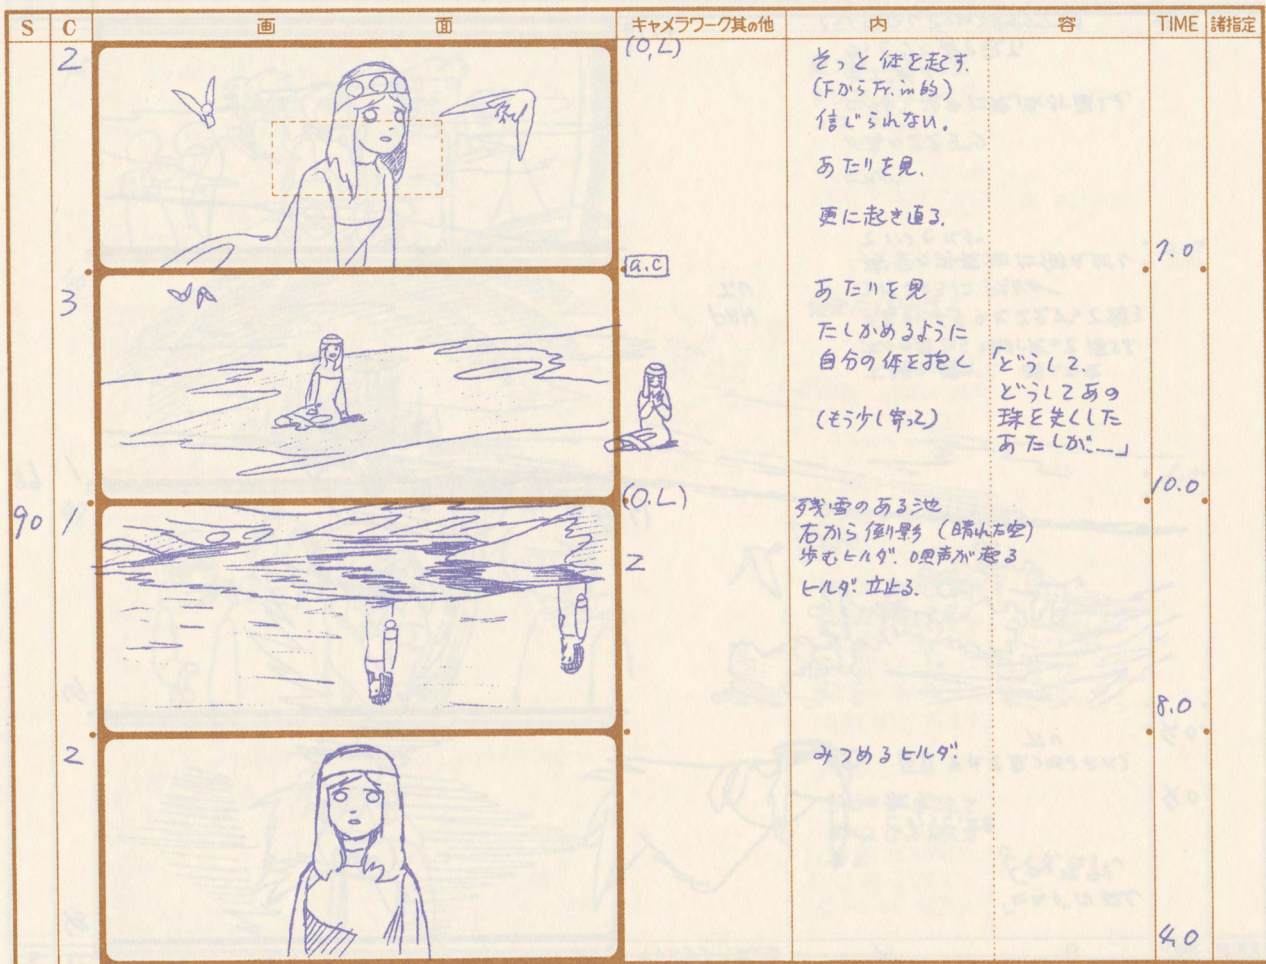 S C 画 面 キャメラワーク其の他 内 容 TIME 諸指定
2
(O,L)
そっと体を起す.
(下からFr.in的)
信じられない.
あたりを見.
更に起き直る.
7.0
3
a.c
あたりを見
たしかめるように
自分の体を抱く
(もう少し寄って)
「どうして、
どうしてあの
珠を失くした
あたしが……」
10.0
90 1
(O.L)
2
残雪のある池
右から倒影 (晴れた空)
歩むヒルダ. 唄声が
ヒルダ. 立止る.
8.0
2
みつめるヒルダ
4.0